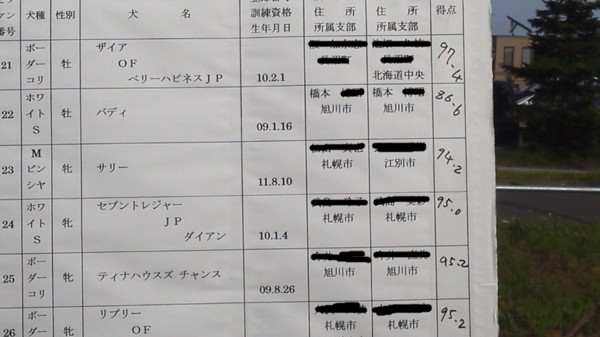 犬種 性別 犬 名 訓練資格 住 所 住 所 得点
番号 生年月日 所属支部 所属支部
21 ボーダーコリ 牡 ザイア 97.4
OF
ベリーハピネスJP 10.2.1 北海道中央
22 ホワイトS 牡 バディ 09.1.16 橋本 旭川市 橋本 旭川市 86.6
23 Mピンシヤ 牝 サリー 11.8.10 札幌市 江別市 94.2
24 ホワイトS 牝 セブントレジャー 札幌市 札幌市 95.0
JP
ダイアン 10.1.4
25 ボーダーコリ 牝 ティナハウスズ チャンス 09.8.26 旭川市 旭川市 95.2
26 ボーダー 牝 リブリー 札幌市 札幌市 95.2
OF